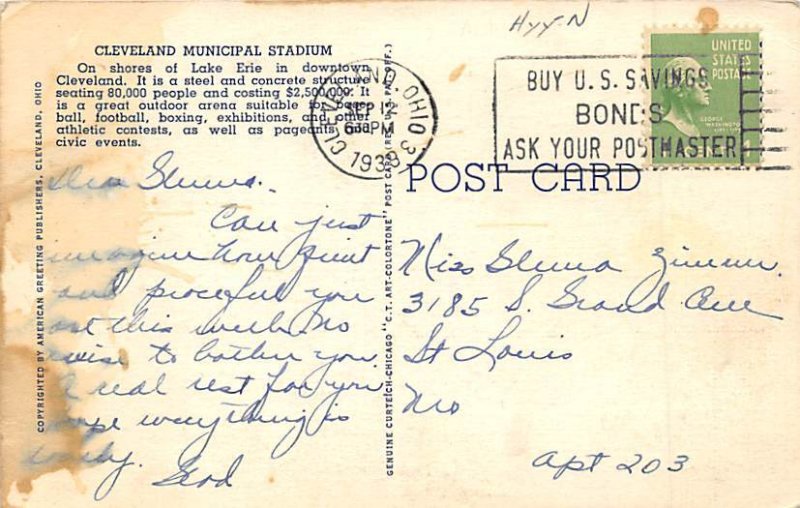 Hyy N
CLEVELAND MUNICIPAL STADIUM
On shores of Lake Erie in downtown
Cleveland. It is a steel and concrete structure
seating 80,000 people and costing $2,500,000. It
is a great outdoor arena suitable for base-
ball, football, boxing, exhibitions, and other
athletic contests, as well as pageants and
civic events.
CLEVELAND, OHIO 3
SEP 12
630 PM
1939
BUY U.S. SAVINGS
BONDS
ASK YOUR POSTMASTER
UNITED
STATES
POSTAGE
GEORGE
WASHINGTON
POST CARD
COPYRIGHTED BY AMERICAN GREETING PUBLISHERS, CLEVELAND, OHIO
GENUINE CURTEICH-CHICAGO "C.T. ART-COLORTONE" POST CARD (REG. U.S. PAT. OFF.)
Dear Glenna.
Can just
imagine how quiet
and peaceful you
are this week. No
noise to bother you
A real rest for you
hope everything is
Miss Glenna Zimmer.
3185 S. Grand Ave
St Louis
Mo
Apt 203